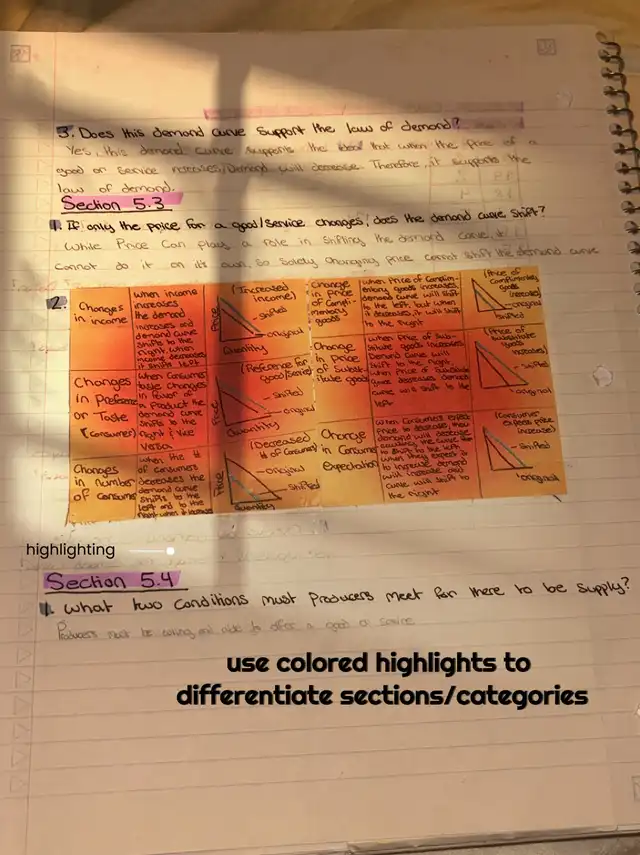 3. Does this demand curve support the law of demand?
Yes, this demand curve supports the idea that when the price of a
good or service increases, Demand will decrease. Therefore, it supports the
law of demand.
Section 5.3
1. If only the price for a good/service changes, does the demand curve shift?
While Price Can play a role in shifting the demand curve, it
cannot do it on its own, so Solely Changing price cannot shift the demand curve
2.
Changes
in income
When income
increases
the demand
increases and
demand curve
shifts to the
right when
income decreases
it shift left
(Increased
income)
Price
shifted
original
Quantity
Change
in Price
of Compli-
mentary
goods
when Price of Complim-
entary goods increases
demand curve will shift
to the left, but when
it decreases, it will shift
to the right
(Price of
Complimentary
goods
increases)
original
shifted
Changes
in Preference
or Taste
(Consumer)
When Consumers
taste changes
in favor of
a Product the
demand curve
shifts to the
right & Vice
Versa
(Preference for
good/service)
Price
shifted
original
Quantity
Change
in Price
of Subst-
itute goods
when Price of Subs-
titute goods increases
Demand Curve will
shift to the right
when Price of Substitute
goods decreases demand
curve will shift to the
left
(Price of
substitute
goods
increases)
shifted
original
Changes
in number
of consumers
when the #
of Consumers
decreases the
demand curve
shifts to the
left and to the
right when it increases
(Decreased
# of Consumers)
Price
original
shifted
Quantity
Change in
Consumer
Expectation
when Consumers expect
Price to decrease, then
demand will decrease
causing the curve to
shift to the left
when they expect it
to increase demand
will increase and
curve will shift to
the right
(Consumer
expects price
increase)
shifted
original
highlighting
Section 5.4
1. What two Conditions must Producers meet for there to be supply?
Producers must be willing and able to offer a good or service
use colored highlights to
differentiate sections/categories